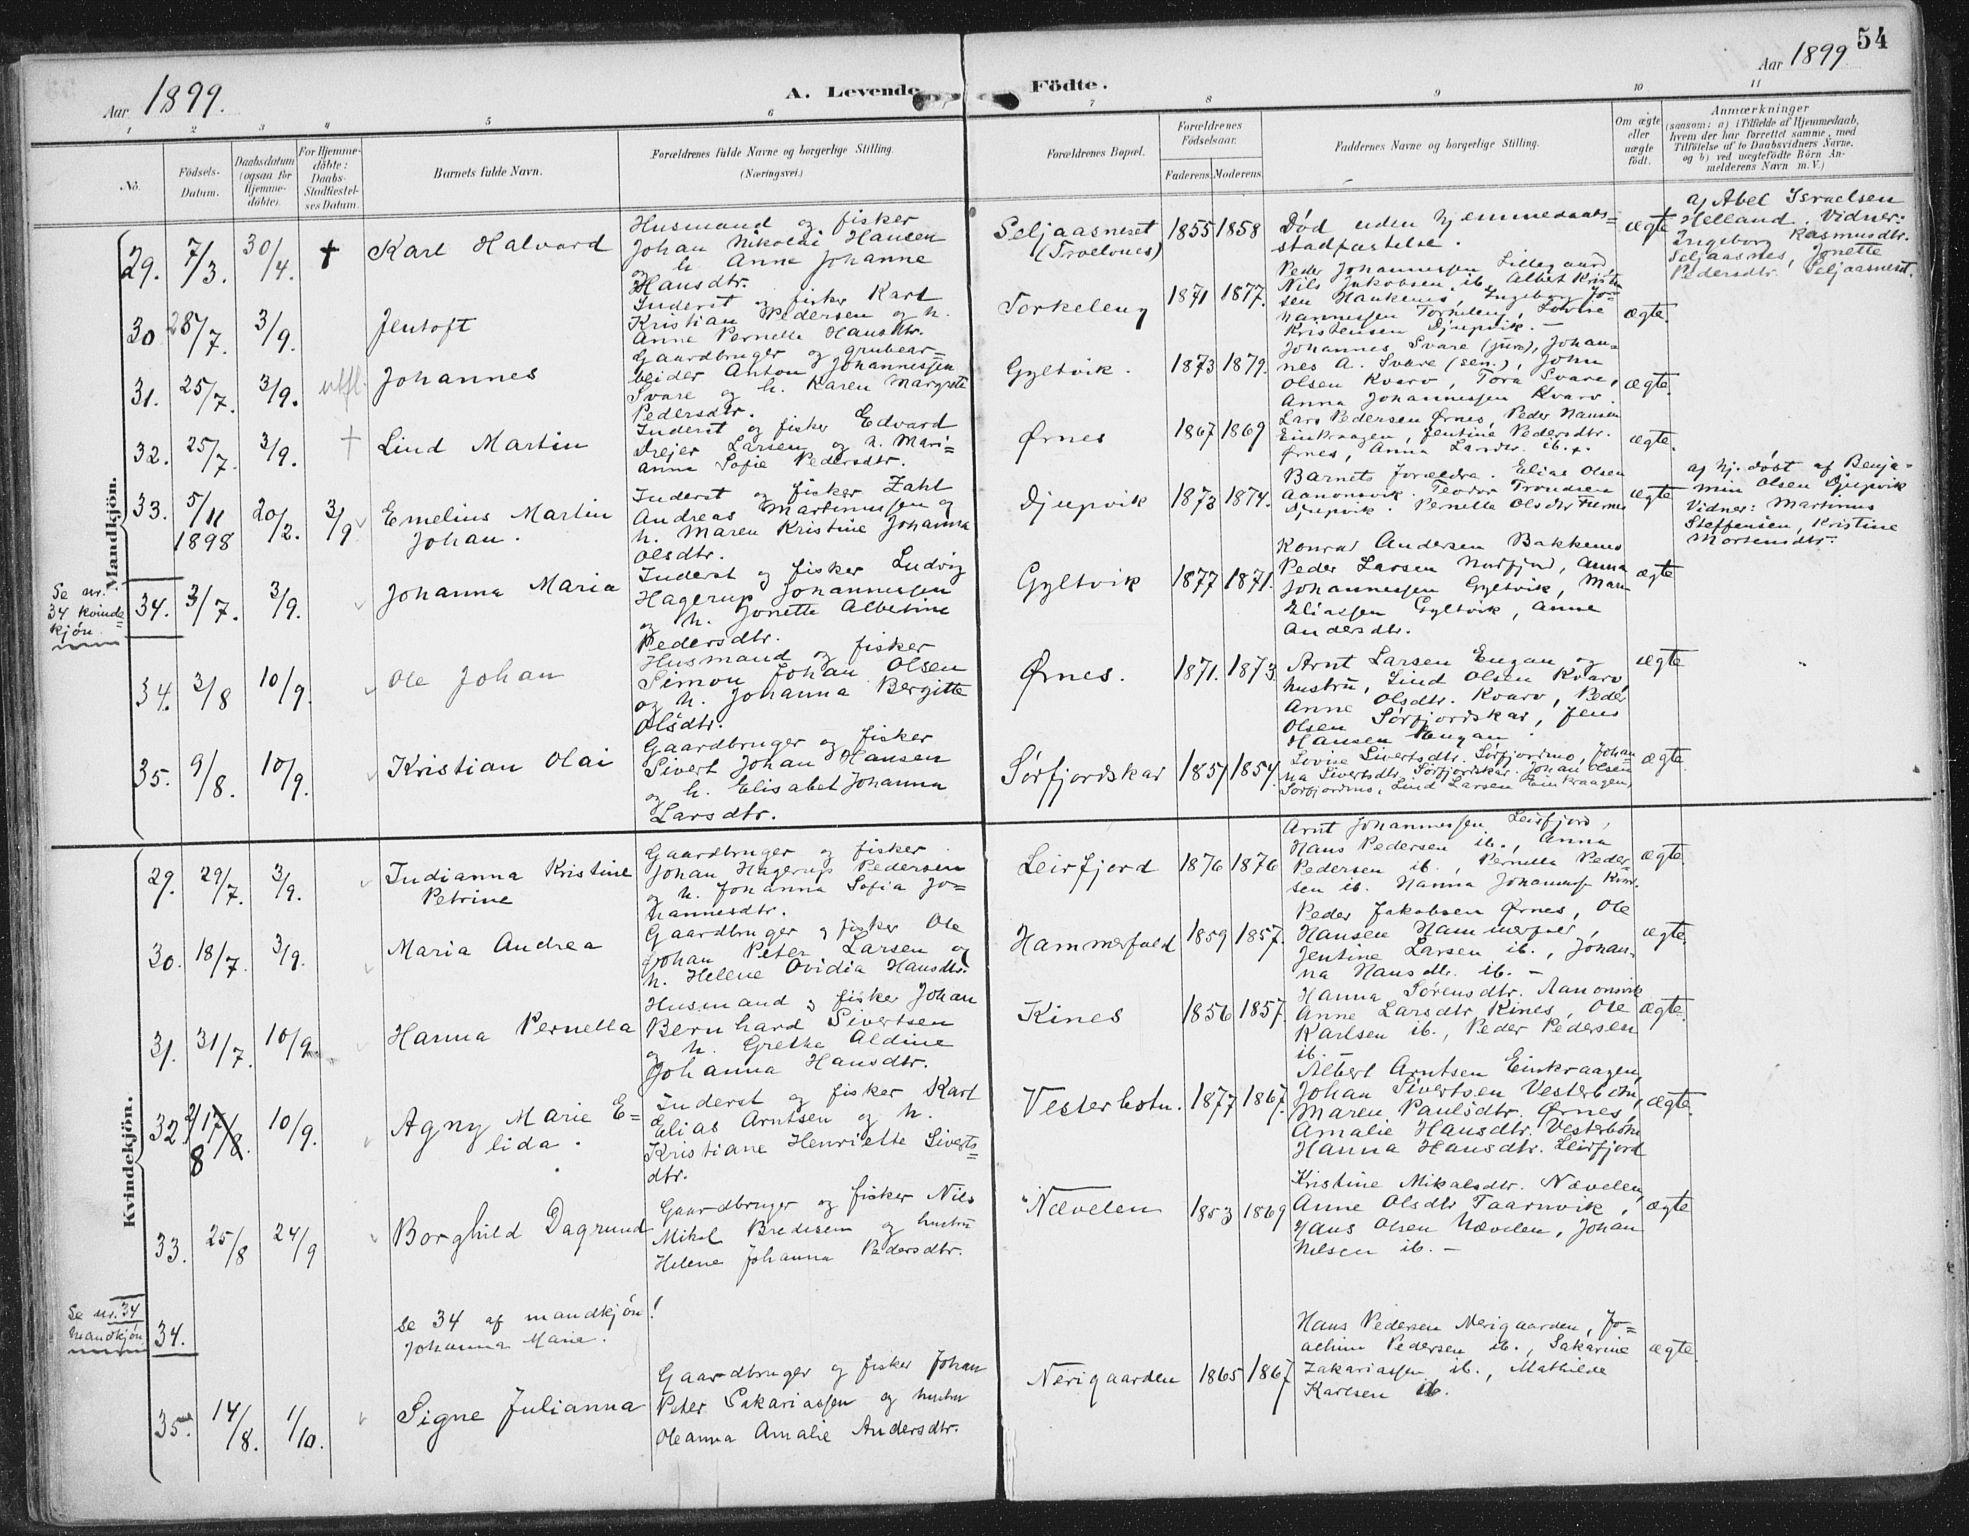 54
Aar 1899.
A. Levende Födte.
Aar 1899
1 2 3 4 5 6 7 8 9 10 11
No.
Födsels-Datum.
Daabsdatum (ogsaa for Hjemmedöbte).
For Hjemmedöbte: Daabs-Stadfæstelses Datum.
Barnets fulde Navn.
Forældrenes fulde Navne og borgerlige Stilling.
(Næringsvei.)
Forældrenes Bopæl.
Forældrenes Födselsaar.
Faderens. Moderens.
Faddernes Navne og borgerlige Stilling.
Om ægte eller uægte födt.
Anmærkninger
(saasom: a) i Tilfælde af Hjemmedaab,
hvem der har forrettet samme, med
Tilföielse af to Daabsvidners Navne,
og b) ved uægtefödte Börn Anmelderens Navn m. V.)
Mandkjön.
29. 7/3. 30/4. † Karl Halvard
Husmand og fisker
Johan Nikolai Hansen
og h. Anne Johanne
Hansdtr.
Seljaasneset
1855 1858
Død uden hjemmedaabs-
stadfæstelse.
ægte
a) Abel Israelsen
Helland. Vidner:
Ingeborg Rasmusdtr.
Seljaasnes, Jonette
Pedersdtr. Seljaasneset.
30 28/7. 3/9. Jentoft
Inderst og fisker Karl
Kristian Pedersen og h.
Anne Pernelle Hansdtr.
Torkeleng
1871 1877.
Peder Johannessen Lillegaard,
Nils Jakobsen ib., Albet Kristen-
sen Haukenes, Ingeborg Jo-
hannessen Torkeleng, Lovise
Kristensen Djupvik. –
ægte.
31. 25/7. 3/9. utfl. Johannes
Gaardbruger og grubear-
beider Anton Johannessen
Svare og h. Karen Margrete
Pedersdtr.
Gyltvik.
1873 1879.
Johannes Svare (jun), Johan-
nes A. Svare (sen.), John
Olsen Kvarv, Tora Svare,
Anna Johannessen Kvarv.
ægte.
32. 25/7. 3/9. † Lind Martin
Inderst og fisker Edvard
Drejer Larsen og h. Mari-
anna Sofie Pedersdtr.
Ørnes
1867 1869
Lars Pedersen Ørnes, Peder Hansen
Einkraagen, Jentine Pedersdtr.
Ørnes, Anna Larsdtr. ib.
ægte.
33. 5/11 1898 20/2. 3/9 Emelius Martin
Johan.
Inderst og fisker Zahl
Andreas Martinussen og
h. Maren Kristine Johanna
Olsdtr.
Djupvik
1873 1874.
Barnets forældre. Elias Olsen
Aanonsvik. Teodor Trondsen
Djupvik. Pernella Olsdtr
ægte
a) hj. døbt af Benja-
min Olsen Djupvik
Vidner: Martinus
Steffensen, Kristine
Mortensdtr.
Se nr.
34 kvinde-
kjön.
34. 3/7. 3/9. Johanna Maria
Inderst og fisker Ludvig
Hagerup Johannessen
og h. Jonette Albertine
Pedersdtr.
Gyltvik
1877 1871.
Konrad Andersen Bakkenes
Peder Larsen Nordfjord, Anna
Johannessen Gyltvik, Mari
Eliassen Gyltvik, Anne
Andersdtr.
ægte
34. 3/8 10/9. Ole Johan
Husmand og fisker
Simon Johan Olsen
og h. Johanna Bergitte
Olsdtr.
Ørnes.
1871. 1873.
Arnt Larsen Engan og
hustru, Lind Olsen Kvarv,
Anne Olsdtr. Kvarv, Peder
Olsen Sørfjordskar, Jens
Hansen Engan.
ægte
35. 9/8. 10/9. Kristian Olai
Gaardbruger og fisker
Sivert Johan Hansen
og h. Elisabet Johanna
Larsdtr.
Sørfjordskar
1857 1854.
Lovise Sivertsdtr. Sørfjordmo, Johan-
na Sivertsdtr. Sørfjordskar. Johan Olsen
Sørfjordmo, Lind Larsen Einkraagen,
ægte.
Kvindekjön.
29. 29/7. 3/9. Indianna Kristine
Petrine
Gaardbruger og fisker
Johan Hagerup Pedersen
og h. Johanna Sofia Jo-
hannesdtr.
Leirfjord
1876 1876
Arnt Johannessen Leirfjord,
Hans Pedersen ib., Anna
Pedersen ib., Pernella Peder-
sen ib. Hanna
ægte.
30. 18/7. 3/9. Maria Andrea
Gaardbruger og fisker Ole
Johan Peter Larsen og
h. Helene Ovidia Hansdtr.
Hammerfald
1859 1857.
Peder Jakobsen Ørnes, Ole
Hansen Hammerfald,
Jentine Larsen ib., Johan-
na Hansdtr. ib. –
ægte.
31. 31/7. 10/9. Hanna Pernella
Husmand og fisker Johan
Bernhard Sivertsen
og h. Grethe Aldine
Johanna Hansdtr.
Kines
1856 1857.
Hanna Sørensdtr. Aanonsvik
Anne Larsdtr Kines, Ole
Karlsen ib., Peder Pedersen
ib.
ægte.
32 2/8 17/8. 10/9. Agny Marie E-
lida.
Inderst og fisker Karl
Elias Arntsen og h.
Kristiane Henriette Siverts-
dtr.
Vesterbotn.
1877 1867.
Albert Arntsen Einkraagen,
Johan Sivertsen Vesterbotn,
Maren Paulsdtr. Ørnes,
Amalie Hansdtr. Vesterbotn
Hanna Hansdtr. Leirfjord
ægte.
33. 25/8 24/9 Borghild Dagrund
Gaardbruger og fisker Nils
Mikal Bredesen og hustru
Helene Johanna Pedersdtr.
Nævelen
1853 1869
Kristine Mikalsdtr. Nævelen,
Anne Olsdtr Taarnvik,
Hans Olsen Nævelen, Johan
Nilsen ib. –
ægte
Se nr. 34
mandkjön
34.
se 34 af mandkjön!
Johanna Marie.
35. 14/8. 1/10. Signe Julianna
Gaardbruger og fisker Johan
Peter Sakariassen og hustru
Oleanna Amalie Andersdtr.
Nerigaarden
1865 1867
Hans Pedersen Nerigaarden, Jo-
achim Pedersen ib., Sakarine
Zakariassen ib., Mathilde
Karlsen ib.
ægte